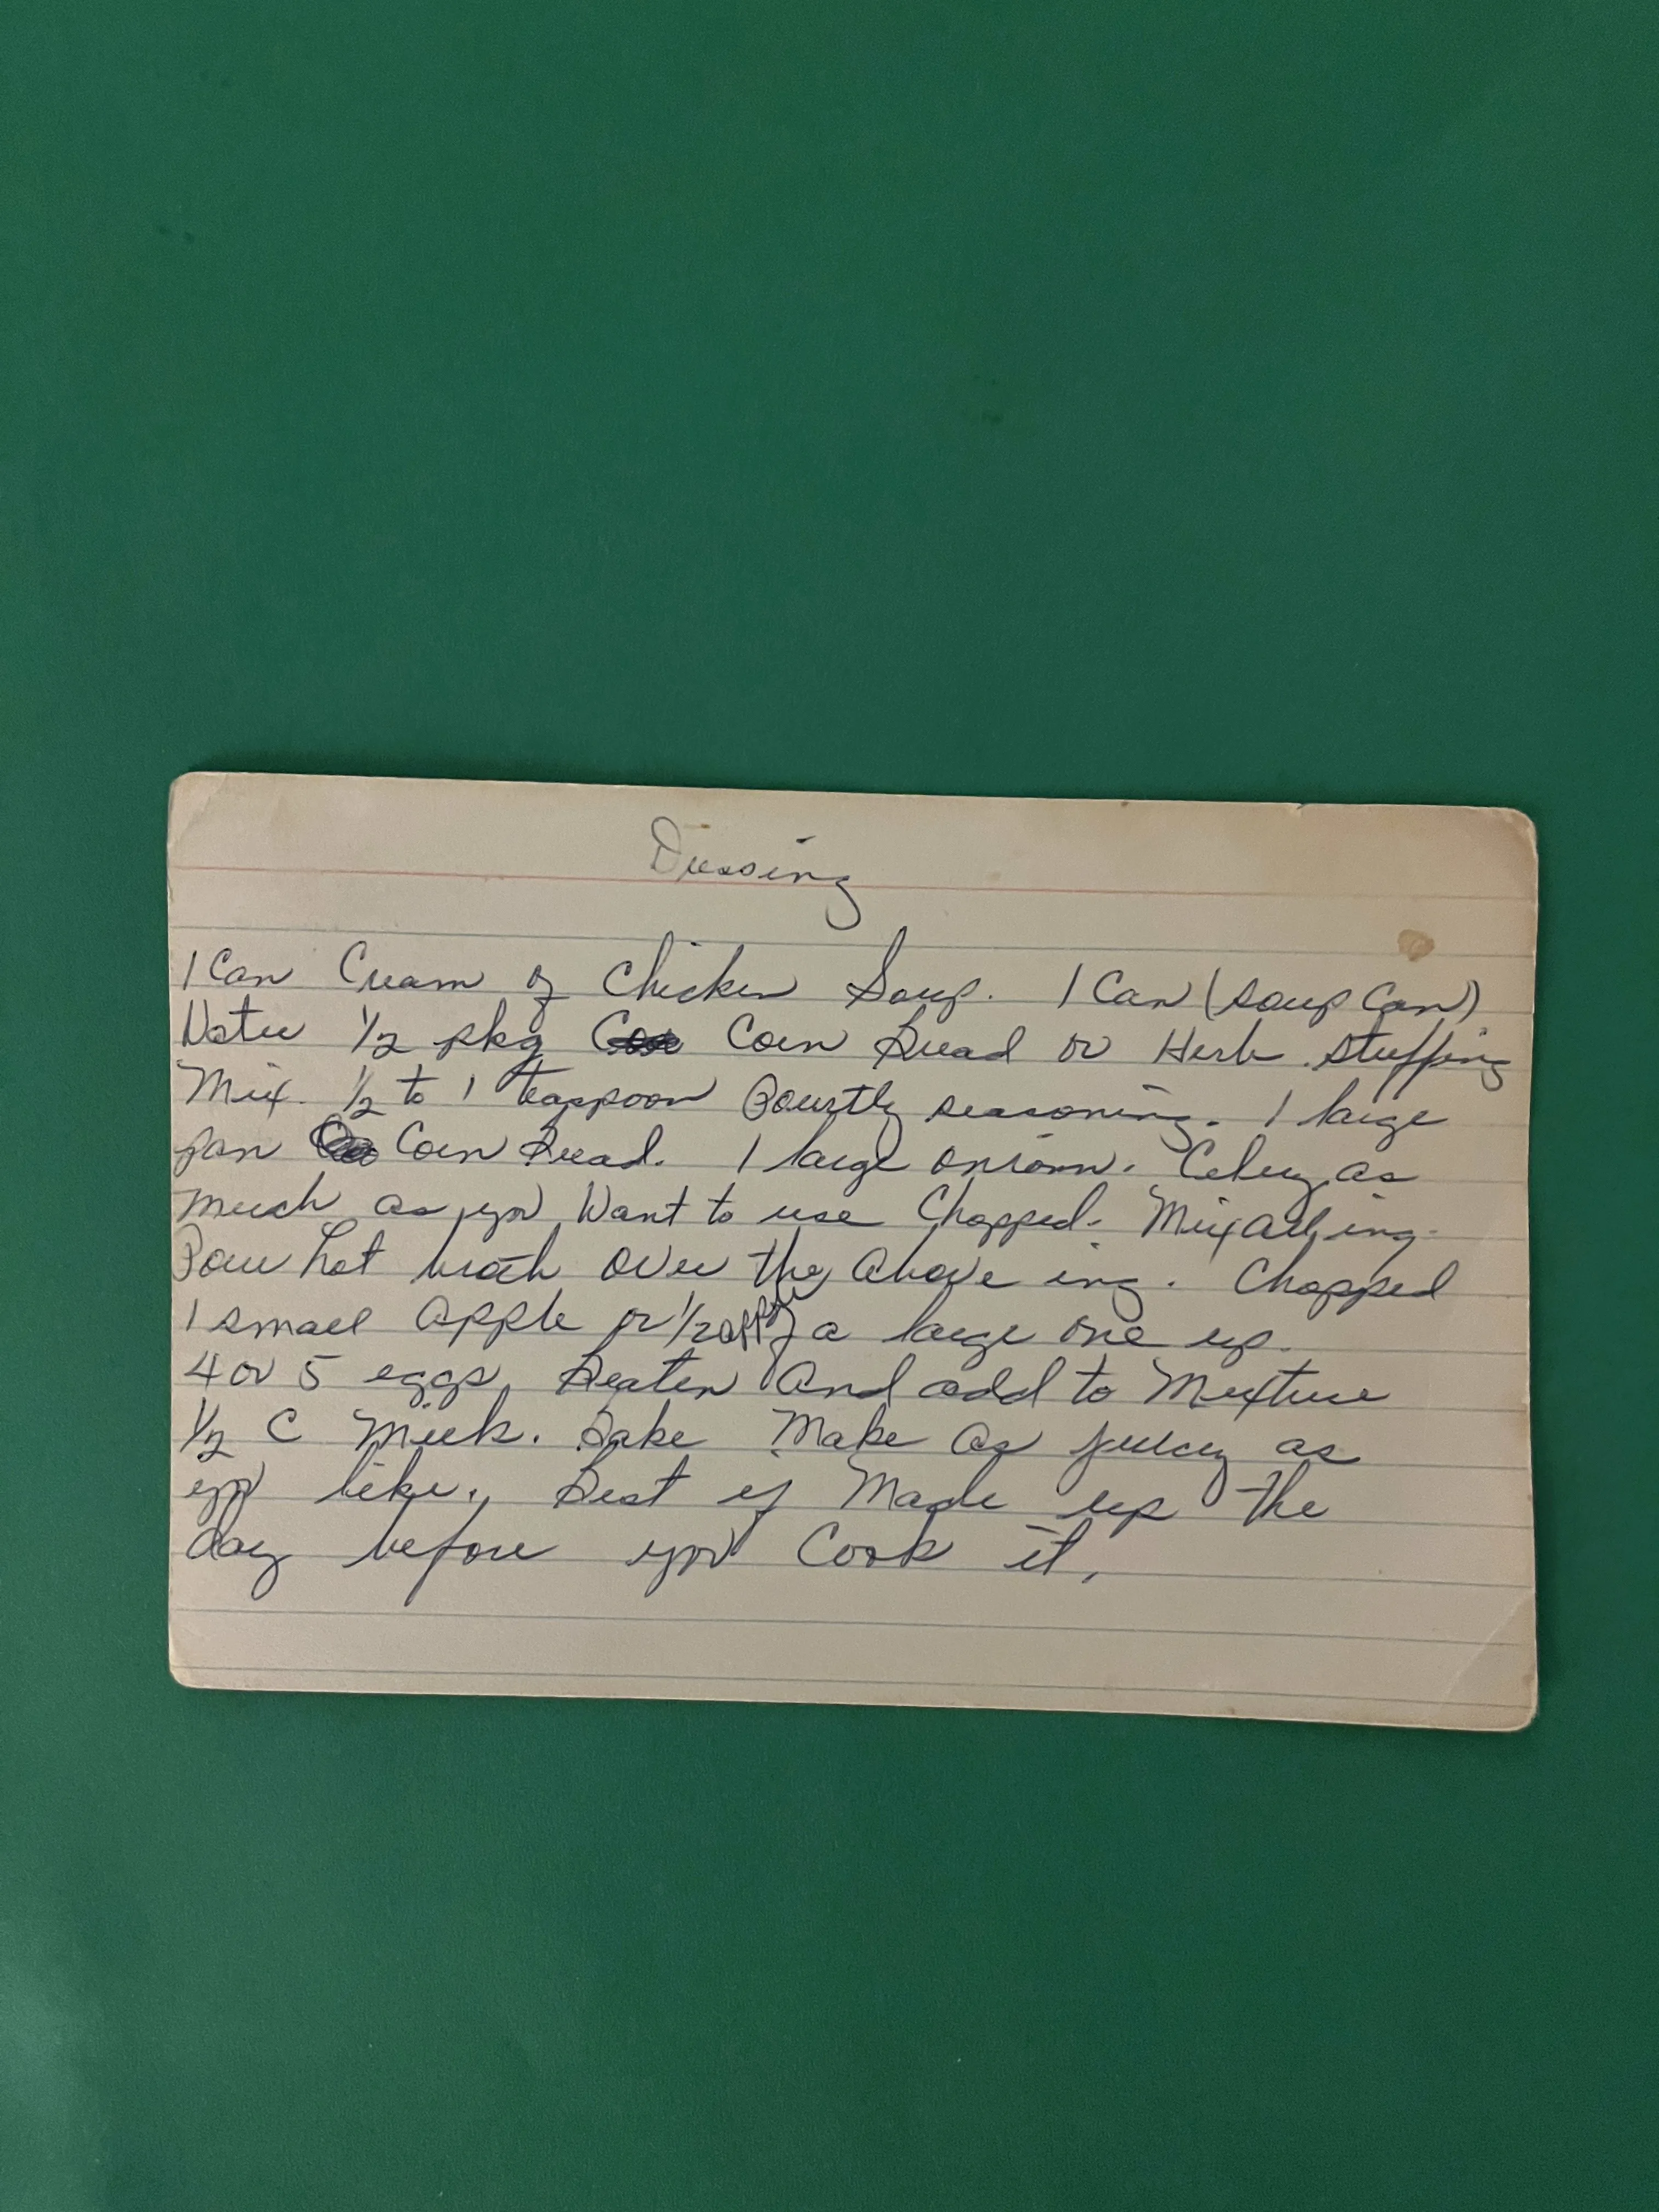 Dressing
1 Can Cream of Chicken Soup. 1 Can (soup Can)
Water 1/2 pkg Corn Bread or Herb stuffing
Mix. 1/2 to 1 teaspoon Pourtly seasoning. 1 large
pan Corn Bread. 1 large onionn. Celery as
much as you Want to use Chopped. Mix all ing.
Pour hot broth over the above ing. Chopped
1 small apple or 1/2 apple of a large one up.
4 or 5 eggs Beaten and add to Mixture
1/2 C Milk. Bake Make as juicy as
you like. Best if Made up the
day before you Cook it.